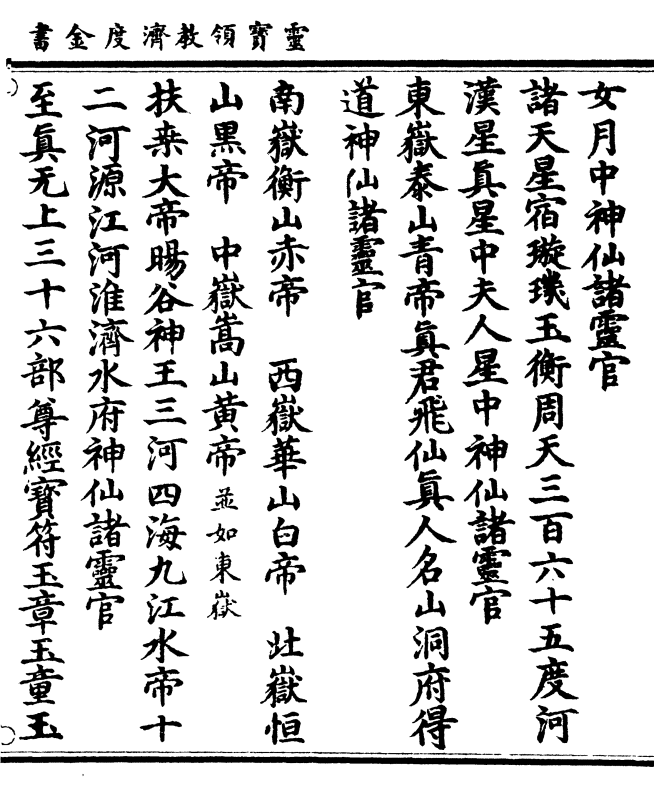 靈寶領教濟度金書
女月中神仙諸靈官
諸天星宿璇璣玉衡周天三百六十五度河
漢星眞星中夫人星中神仙諸靈官
東嶽泰山青帝眞君飛仙眞人名山洞府得
道神仙諸靈官
南嶽衡山赤帝　西嶽華山白帝　北嶽恒
山黑帝　中嶽嵩山黃帝並如東嶽
扶桒大帝暘谷神王三河四海九江水帝十
二河源江河淮濟水府神仙諸靈官
至眞无上三十六部尊經寶符玉章玉童玉